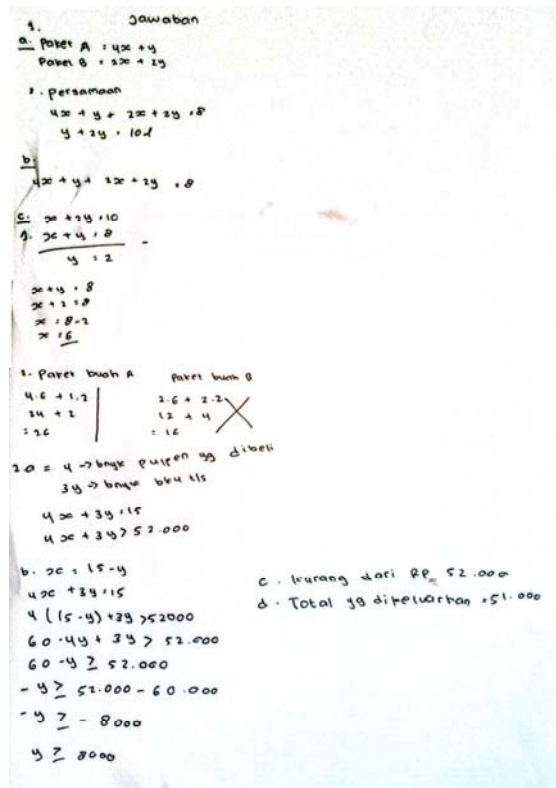 Jawaban
1.
a. Paket A = 4x + y
Paket B = 2x + 2y
2. persamaan
4x + y + 2x + 2y = 8
y + 2y = 10
b.
4x + y + 2x + 2y = 8
c. x + 2y = 10
1. x + y = 8
y = 2
x + y = 8
x + 2 = 8
x = 8-2
x = 6
2. Paket buah A
4.6 + 1.2
24 + 2
= 26
Paket buah B
2.6 + 2.2
12 + 4
= 16
2a = 4 → bnyk pulpen yg dibeli
3y → bnyk bku tls
4x + 3y = 15
4x + 3y > 52.000
b. x = 15-y
4x + 3y = 15
4 (15-y) + 3y > 52000
60 - 4y + 3y > 52.000
60 - y ≥ 52.000
- y ≥ 52.000 - 60.000
- y ≥ - 8000
y ≥ 8000
c. kurang dari RP. 52.000
d. Total yg dikeluarkan = 51.000